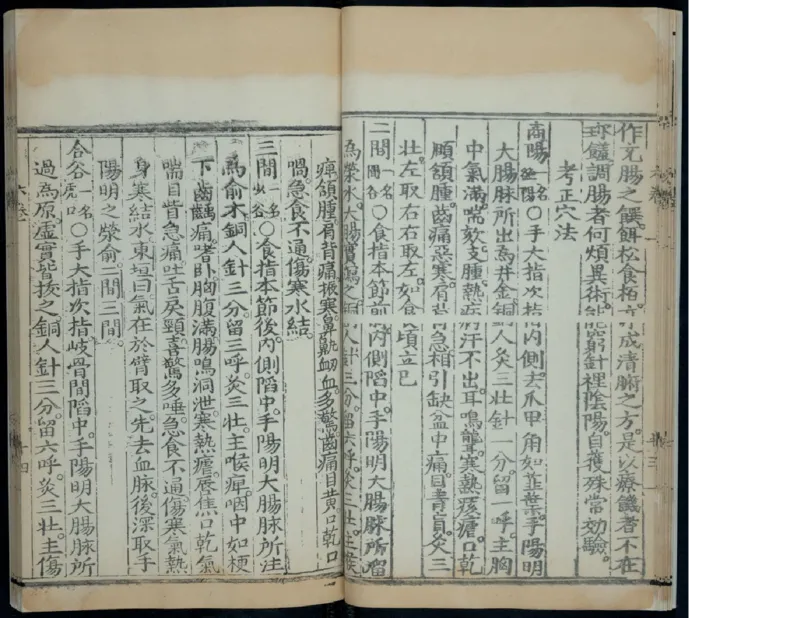 作充腸之饌餌松食栢亦成清腑之方。是以療饑者不在
珎饈調腸者何煩異術能窮針裡陰陽。自獲殊當効驗。
考正穴法
商陽一名絶陽〇手大指次指內側去爪甲角如韭葉手陽明
大腸脉所出為井金銅人灸三壯針一分留一呼。主胸
中氣滿喘欬支腫熱病汗不出耳鳴聾。寒熱痎瘧。口乾
頤頷腫。齒痛惡寒肩背急相引缺盆中痛。目青盲灸三
壯。左取右右取左。如食頃立已
二間一名間谷〇食指本節前內側陷中手陽明大腸脉所溜
為滎水大腸實瀉之銅人針三分。留六呼。灸三壯。主喉
痺頷腫肩背痛振寒鼻鼽衂血多驚齒痛目黃口乾口
喎急食不通傷寒水結。
三間一名少谷〇食指本節後內側陷中。手陽明大腸脉所注
為俞木銅人針三分留三呼。灸三壯。主喉痺咽中如梗
下齒齲痛嗜卧胸腹滿腸鳴洞泄。寒熱瘧。唇焦口乾氣
喘目眥急痛。吐舌戾頸。喜驚多唾。急食不通。傷寒氣熱
身寒結水東垣曰氣在於臂取之。先去血脉後深取手
陽明之滎俞二間三間。
合谷一名虎口〇手大指次指岐骨間陷中。手陽明大腸脉所
過為原。虛實皆拔之銅人針三分留六呼灸三壯。主傷
六卷
四